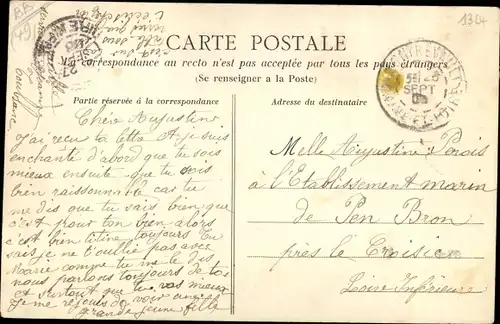 1304
CARTE POSTALE
La correspondance au recto n'est pas acceptée par tous les pays étrangers
(Se renseigner à la Poste)
Partie réservée à la correspondance
Adresse du destinataire
SEPT
Chère Augustine
j'ai reçu ta lettre et je suis
enchanté d'abord que tu sois
mieux ensuite que tu sois
bien raisonnable car tu
me dis que tu sais bien que
c'est pour ton bien alors
c'est bien titine toujours tu
sais je ne t'oublie pas avec
Marie comme tu me le dis
nous parlons toujours de toi
et surtout que tu vas mieux
je me réjouis de voir une
grande jeune fille
Melle Augustine
à l'Etablissement marin
de Pen Bron
près le Croisic
Loire Inférieure